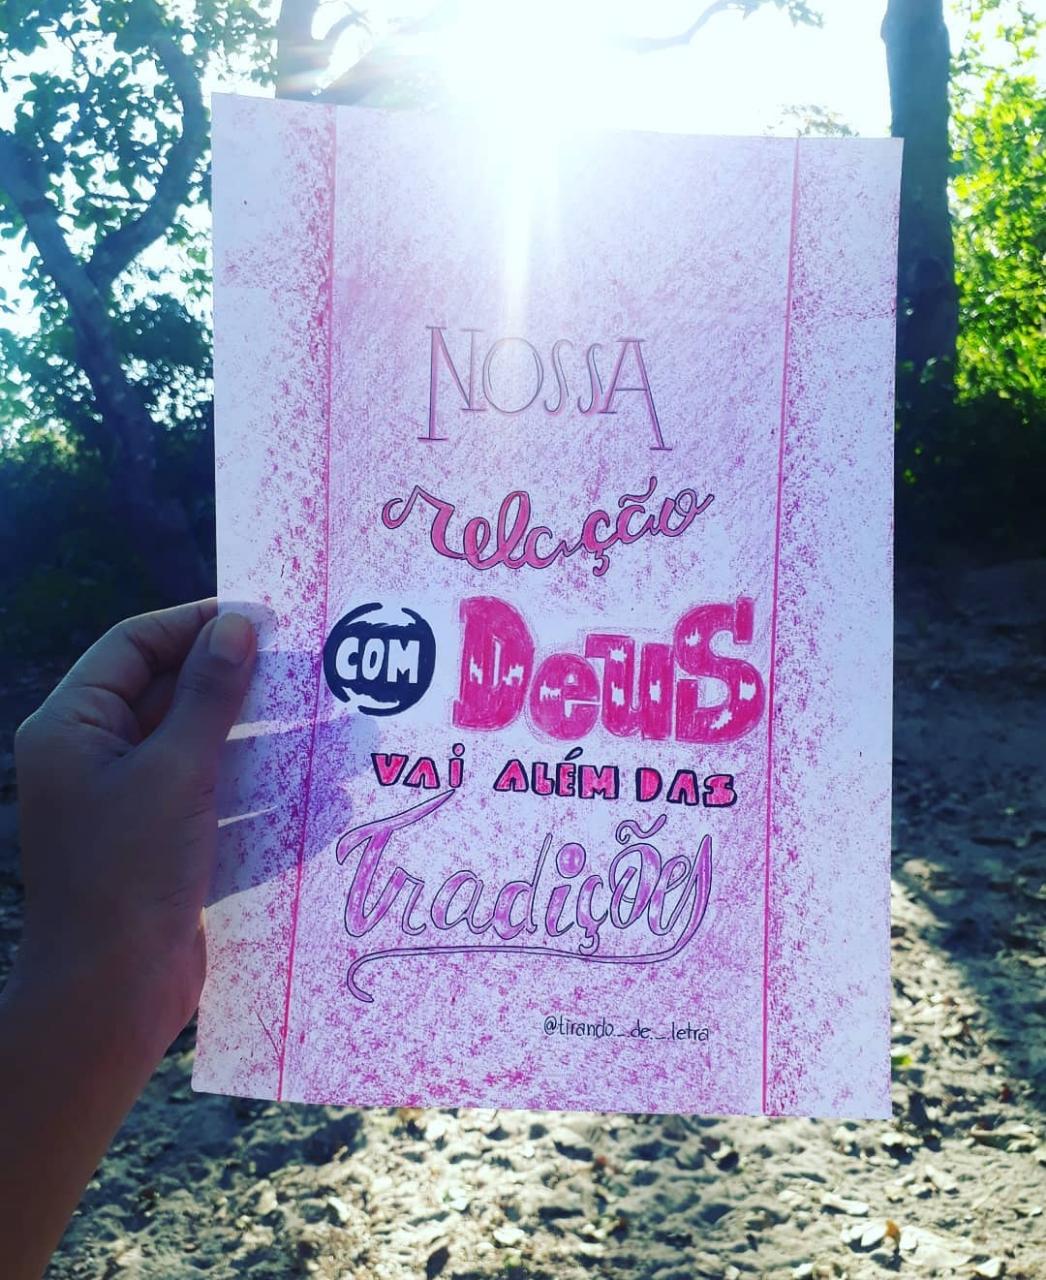 NOSSA
relação
COM DeuS
VAi ALÉM DAS
Tradições
@tirando._de._letra